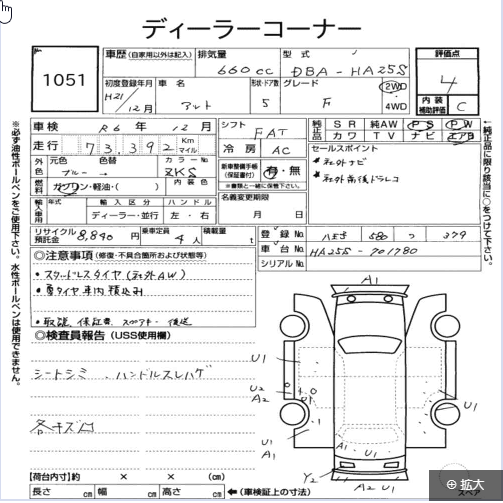 ディーラーコーナー
1051
車歴 (自家用以外は記入)
排気量 660cc
型式 DBA-HA25S
評価点 4
初度登録年月 H21/12月
車名 アルト
形状・ドア数 5
グレード F
2WD
4WD
内装補助評価 C
車検 R6年12月
シフト FAT
純正品 SR 純AW PS PW
カワ TV ナビ エアB
走行 73,392 Km マイル
冷房 AC
セールスポイント
外色 元色 ブルー→ 色替
カラーNo ZKS
新車整備手帳(保証書付) 有・無
※書類と一緒に保管下さい。
・社外ナビ
・社外前後ドラレコ
燃料 ガソリン・軽油・( )
内装色
名義変更期限
月 日
輸入車用 年式
輸入区分 ディーラー・並行
ハンドル 左・右
リサイクル預託金 8,840円
乗車定員 4人
積載量 t
登録No 580 つ 379
車台No HA25S-701780
シリアルNo
◎注意事項 (修復・不具合箇所および状態等)
・スタッドレスタイヤ(社外AW)
・夏タイヤ車内積込み
・取説、保証書、スペアキー後送
◎検査員報告 (USS使用欄)
シートシミ、ハンドルスレハゲ
各キズ凹
A1
U1
U2
A2
U1
A1
U1
A1
U1
Y2
A2 U1
【荷台内寸】約 × × (cm)
長さ cm 幅 cm 高さ cm ←(車検証上の寸法)
スペア
拡大
※必ず油性ボールペンをご使用下さい。水性ボールペンは使用できません。
←純正品に限り該当に○をつけて下さい。